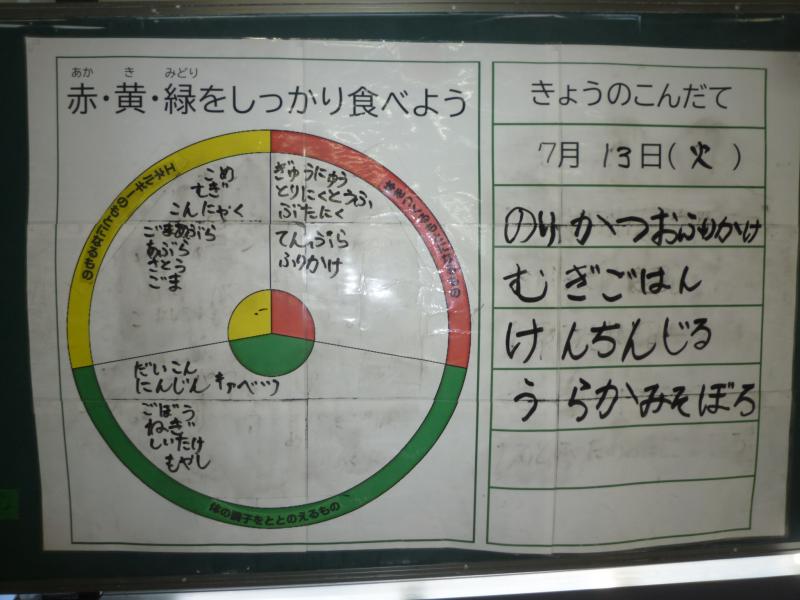 あか き みどり
赤・黄・緑をしっかり食べよう
エネルギーのもとになるもの
こめ
むぎ
こんにゃく
ごまあぶら
あぶら
さとう
ごま
ぎゅうにゅう
とりにくとうふ
ぶたにく
てんぷら
ふりかけ
体をつくるもとになるもの
だいこん
にんじん キャベツ
ごぼう
ねぎ
しいたけ
もやし
体の調子をととのえるもの
きょうのこんだて
7月 13日(火)
のりかつおふりかけ
むぎごはん
けんちんじる
うらかみそぼろ